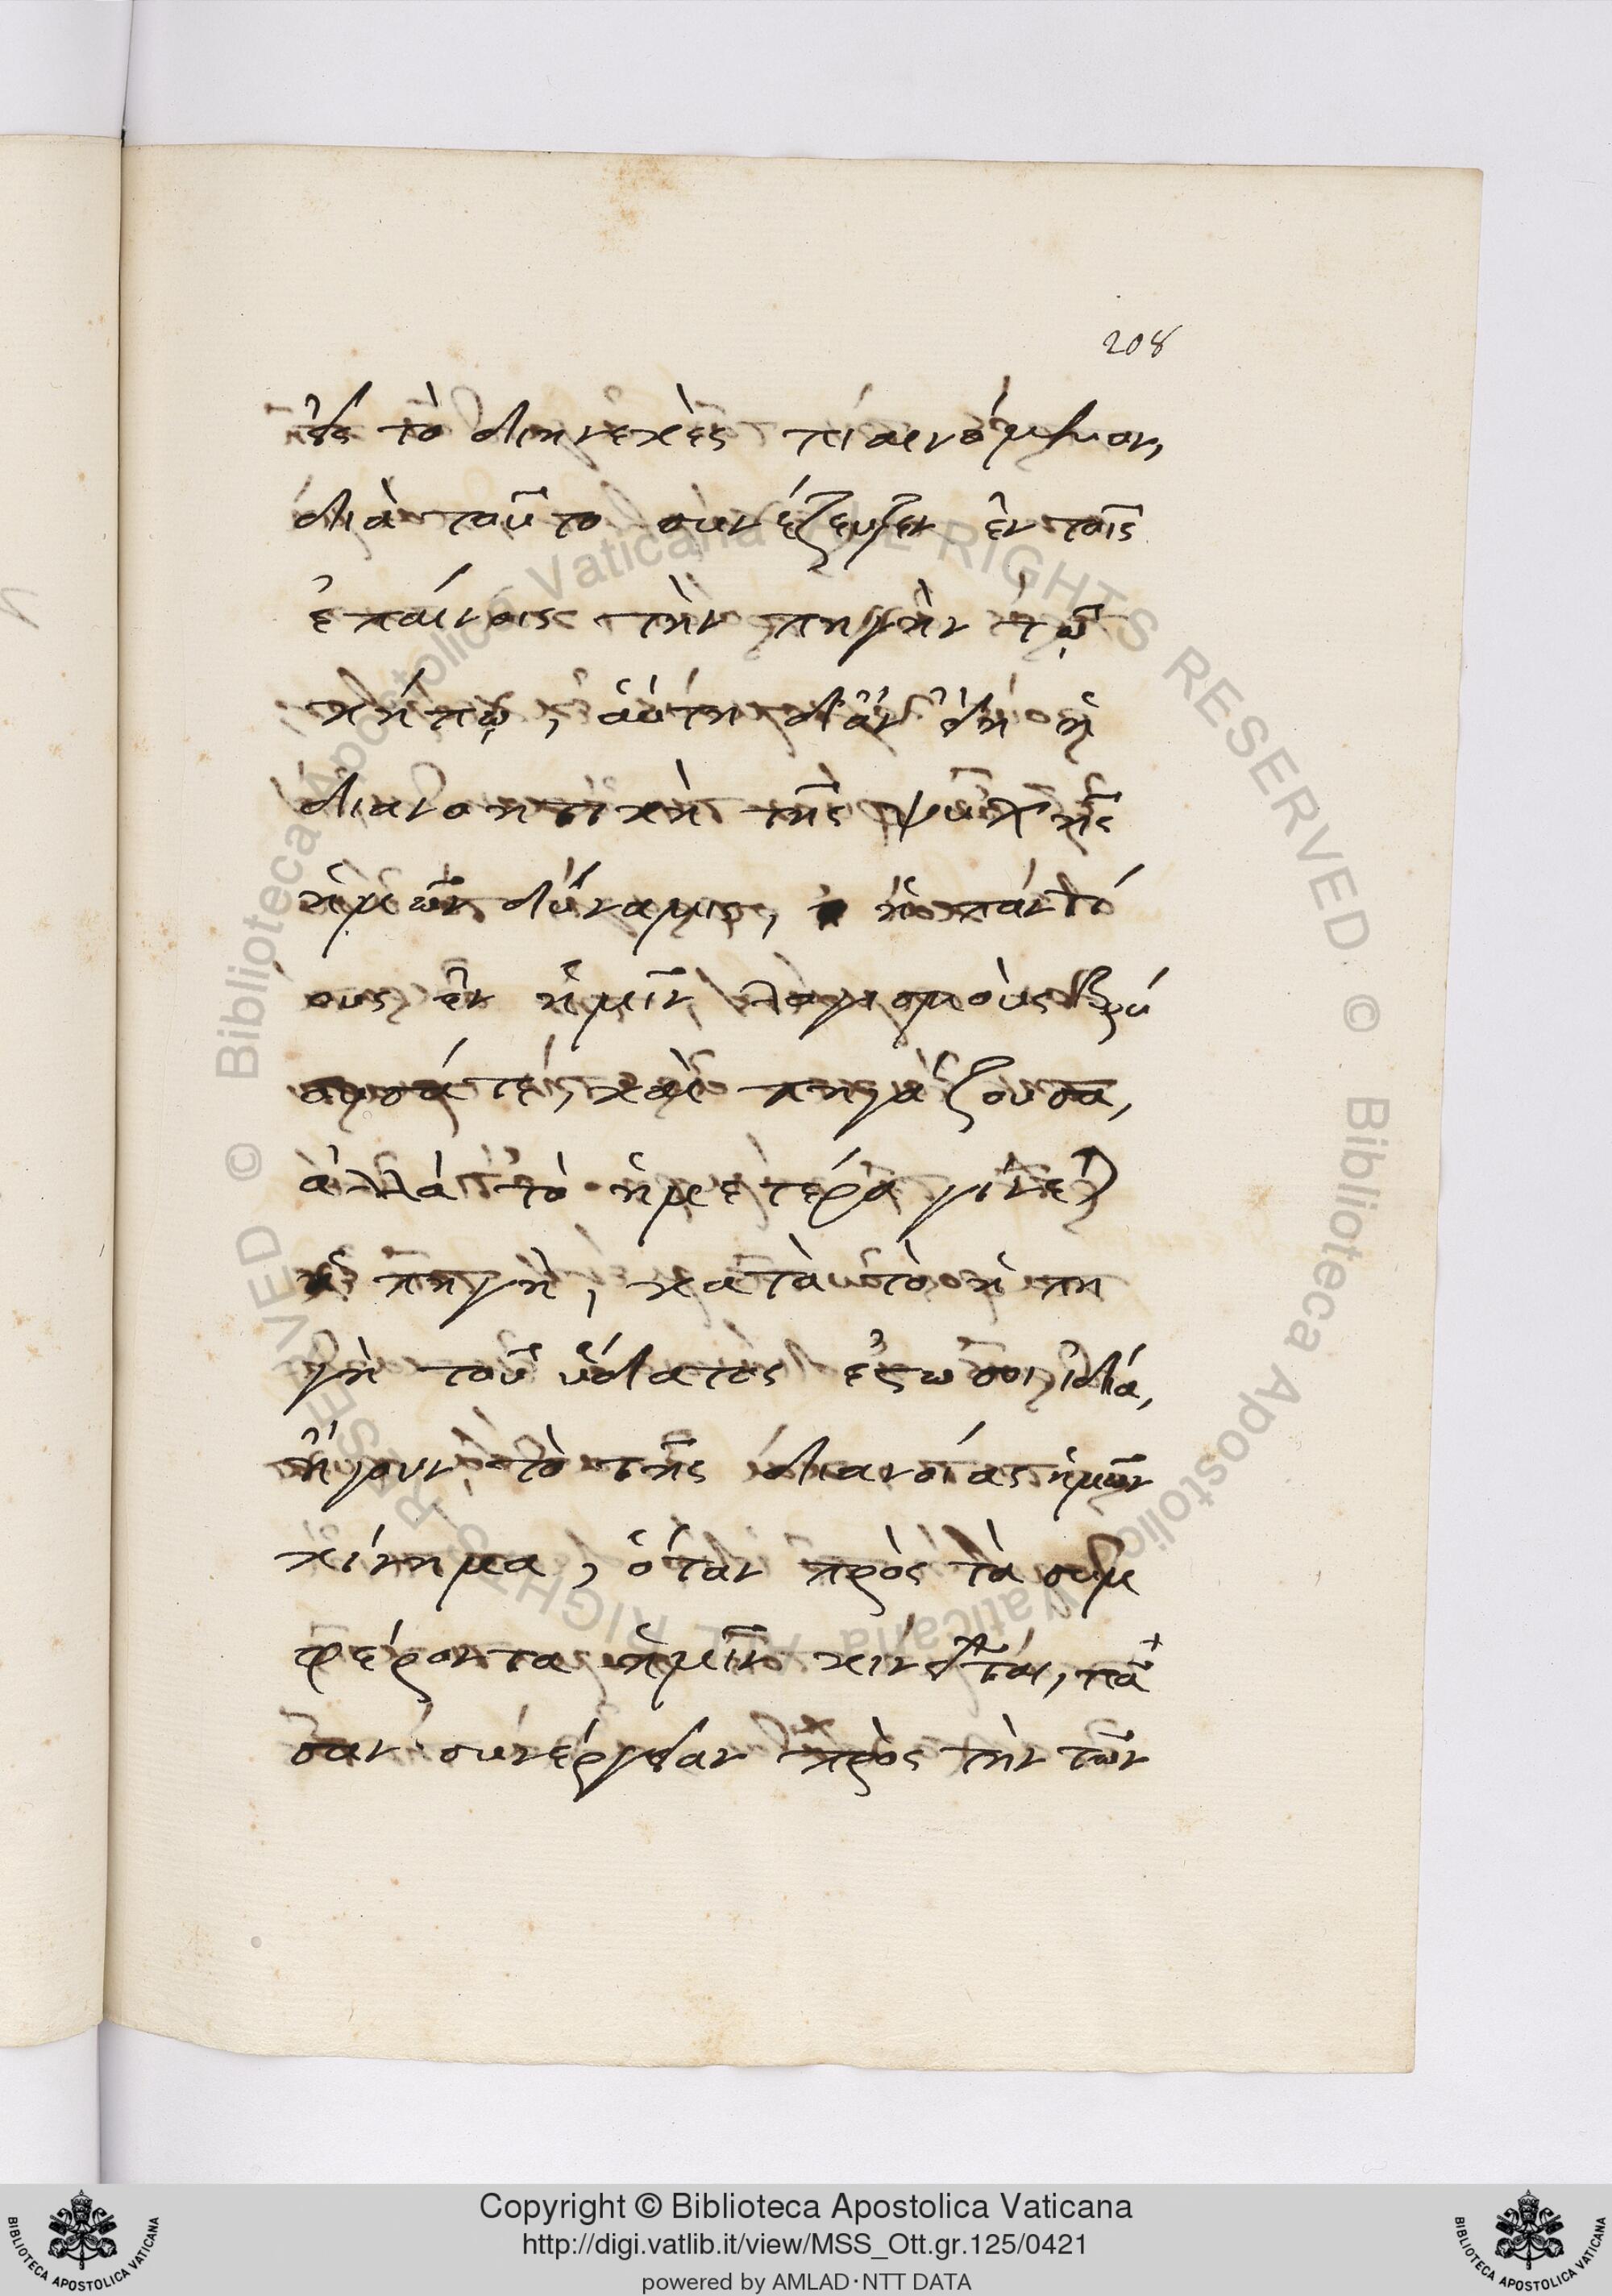 208
εἰς τὸ διηνεκὲς πιαινόμενον,
διὰ τοῦτο συνέζευξεν ἐν τοῖς
ἐπαίνοις τὴν πηγὴν τῷ
κήπῳ, αὕτη δ' ἂν εἴη ἡ
διανοητικὴ τῆς ψυχῆς
ἡμῶν δύναμις, ἡ παντοί
ους ἐν ἡμῖν λογισμοὺς βρύ
ουσά τε, καὶ πηγάζουσα,
ἀλλὰ τὸ ἡμετέρα γίνεται
ἡ πηγὴ, κατὰ τὸ ἡ πη
γὴ τοῦ ὕδατος ἔστω σοι ἰδία,
ἤγουν τὸ τῆς διανοίας ἡμῶν
κίνημα, ὅταν πρὸς τὰ συμ
φέροντα ἡμῖν κινεῖται, πᾶ
σαν συνέργειαν πρὸς τὴν τῶν
Copyright © Biblioteca Apostolica Vaticana
http://digi.vatlib.it/view/MSS_Ott.gr.125/0421
powered by AMLAD·NTT DATA
BIBLIOTECA APOSTOLICA VATICANA
BIBLIOTECA APOSTOLICA VATICANA
© Biblioteca Apostolica Vaticana ALL RIGHTS RESERVED © Biblioteca Apostolica Vaticana ALL RIGHTS RESERVED